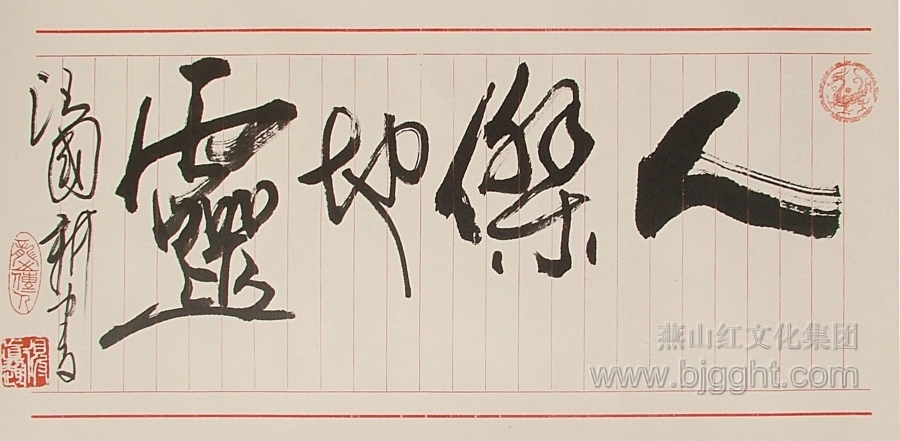 人傑地靈
汪國新書
燕山红文化集团
www.bjgght.com